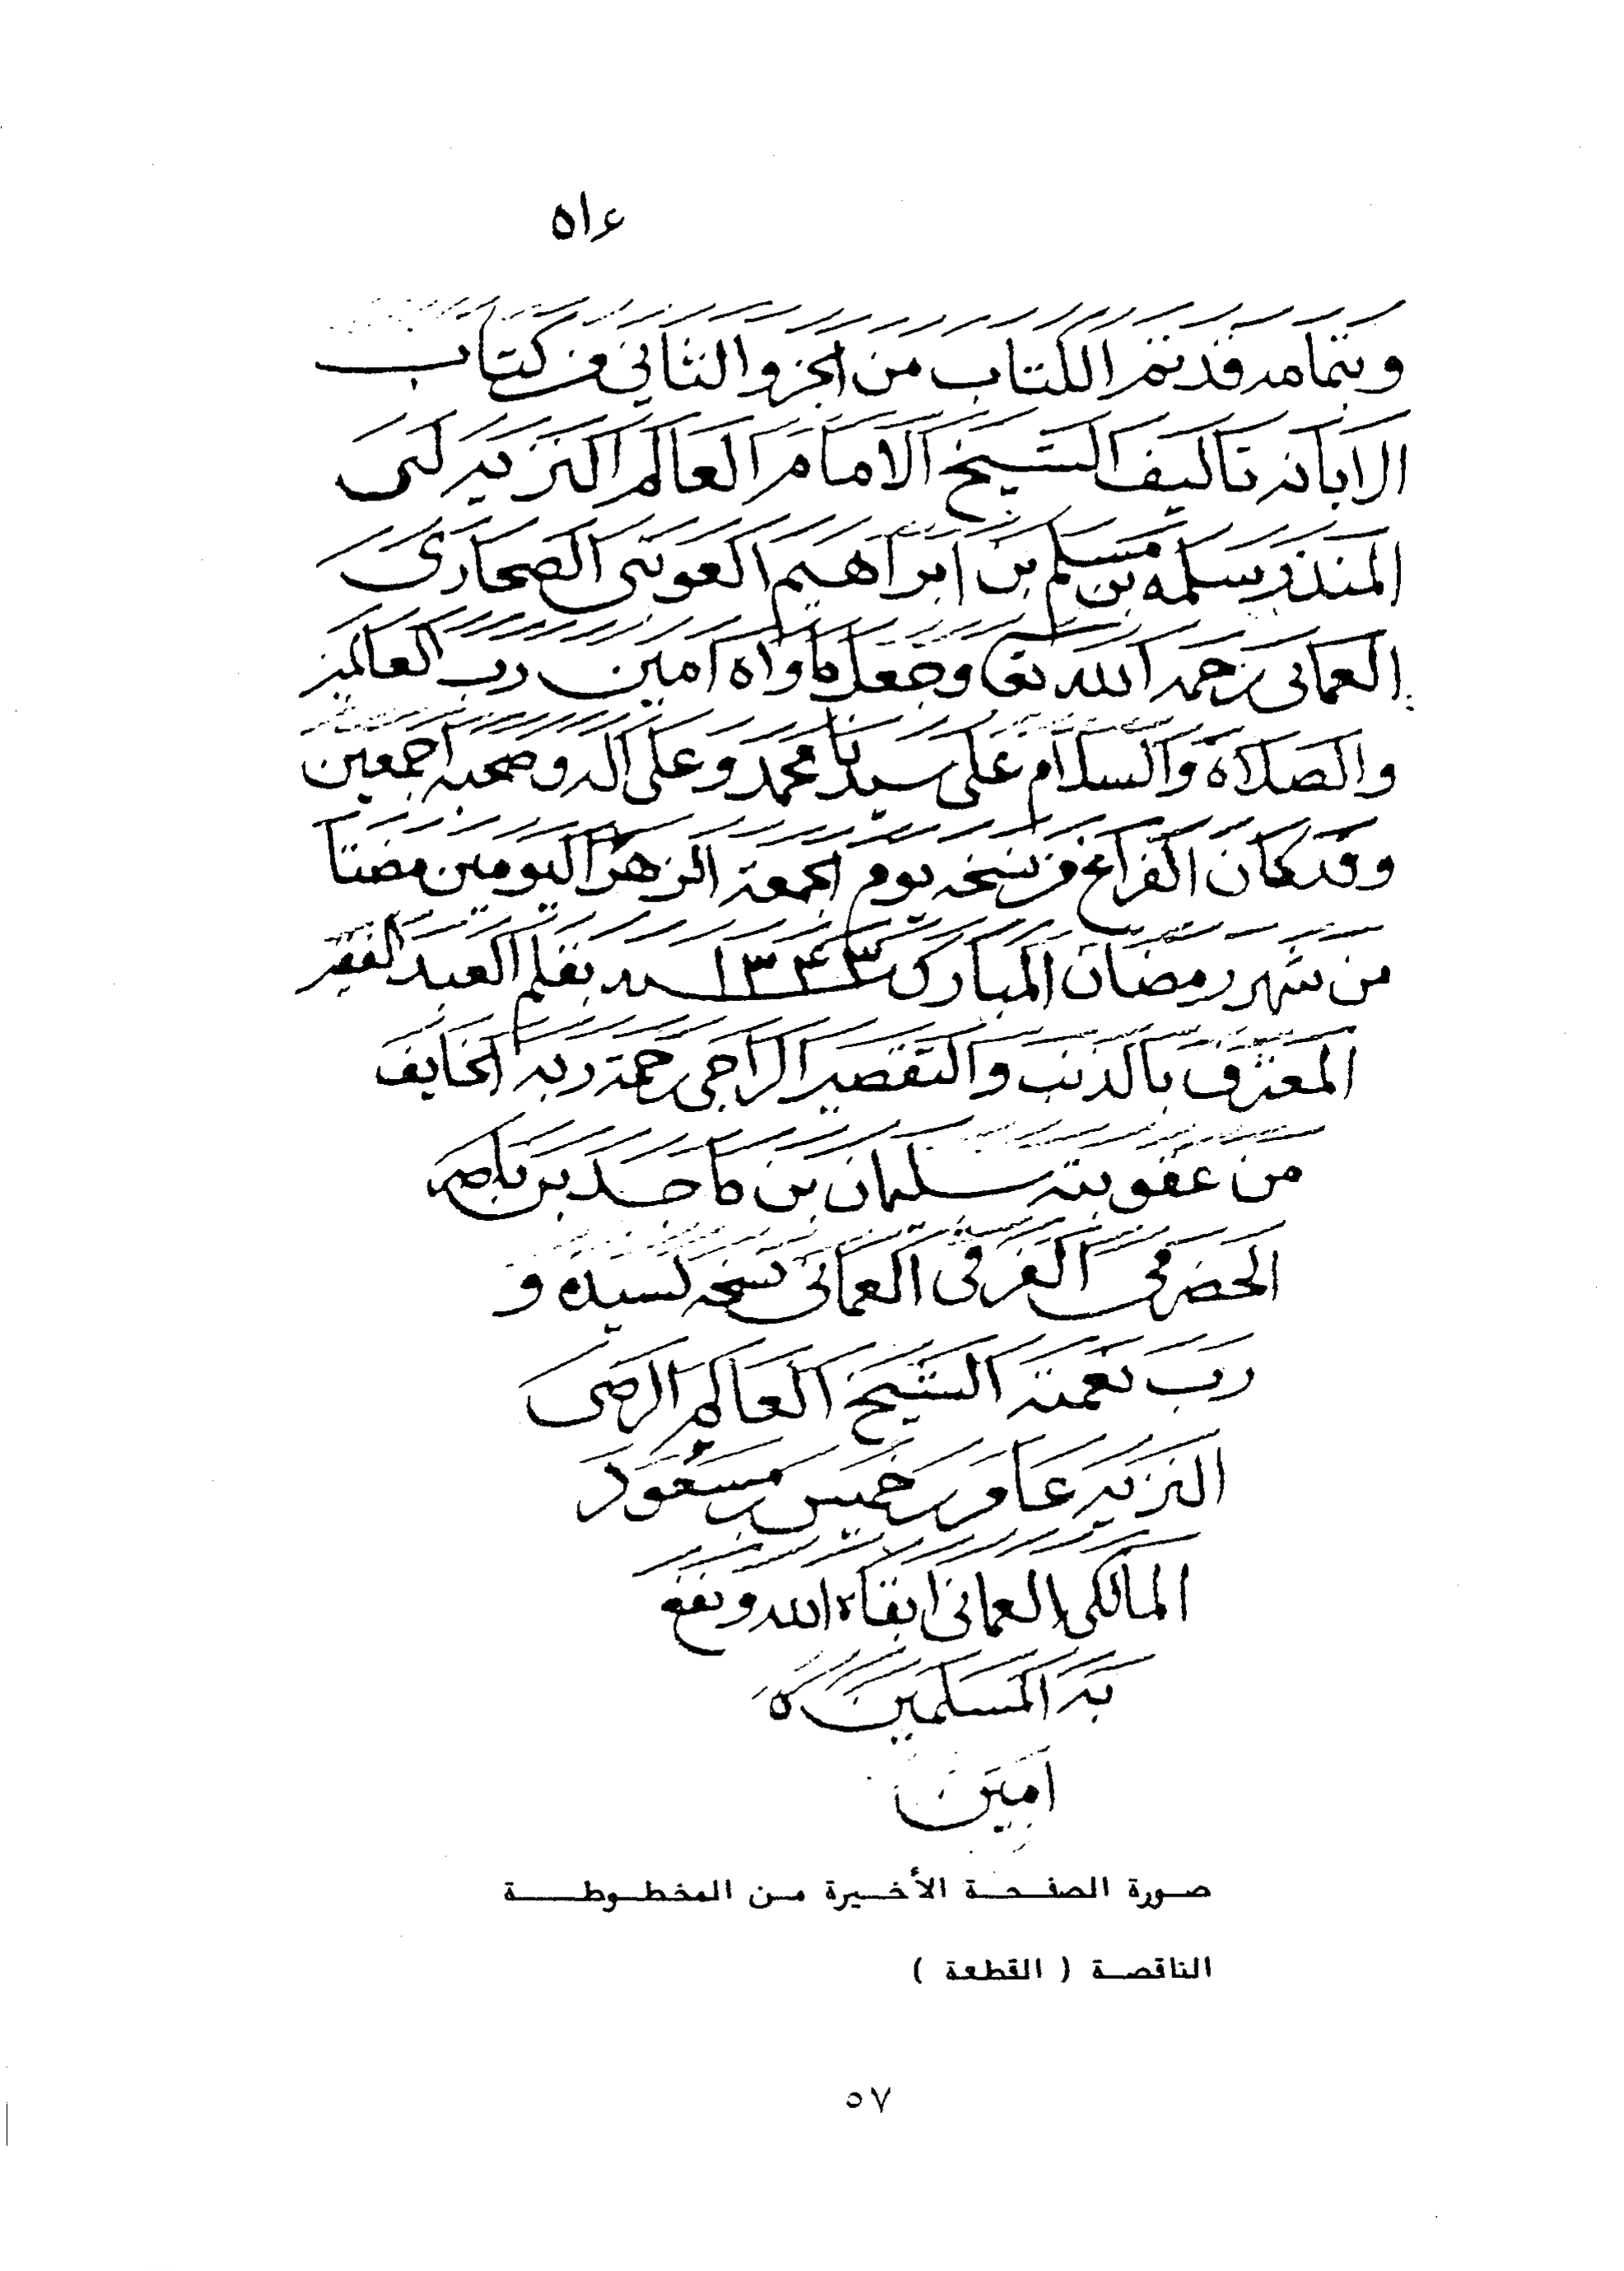 ٥١٤
وبتمامه قد تم الكتاب من الجزو الثاني من كتاب
الابانه تاليف الشيخ الامام العالم النزيه لبي
المنذر سلمه بن مسلم بن ابراهيم العوتبي الصحاري
العماني رحمه الله تعا وجعل ماواه امين رب العالمين
والصلاة والسلام على سيدنا محمد وعلى اله وصحبه اجمعين
وقد كان الفراغ من نسخه يوم الجمعة الزهرا ليومين مضتا
من شهر رمضان المبارك ١٣٤٣ سنه بقلم العبد الفقير
المعترف بالذنب والتقصير الراجي رحمة ربه الخايف
من عقوبته سليمان بن ماجد بن ناصر
الحضرمي الغرفي العماني نسخه لسيده و
رب نعمته الشيخ العالم الرضي
النزيه عامر بن خميس بن مسعود
المالكي العماني ابقاه الله ونفع
به المسلمين
امين
صورة الصفحة الأخيرة من المخطوطة
الناقصة ( القطعة )
٥٧